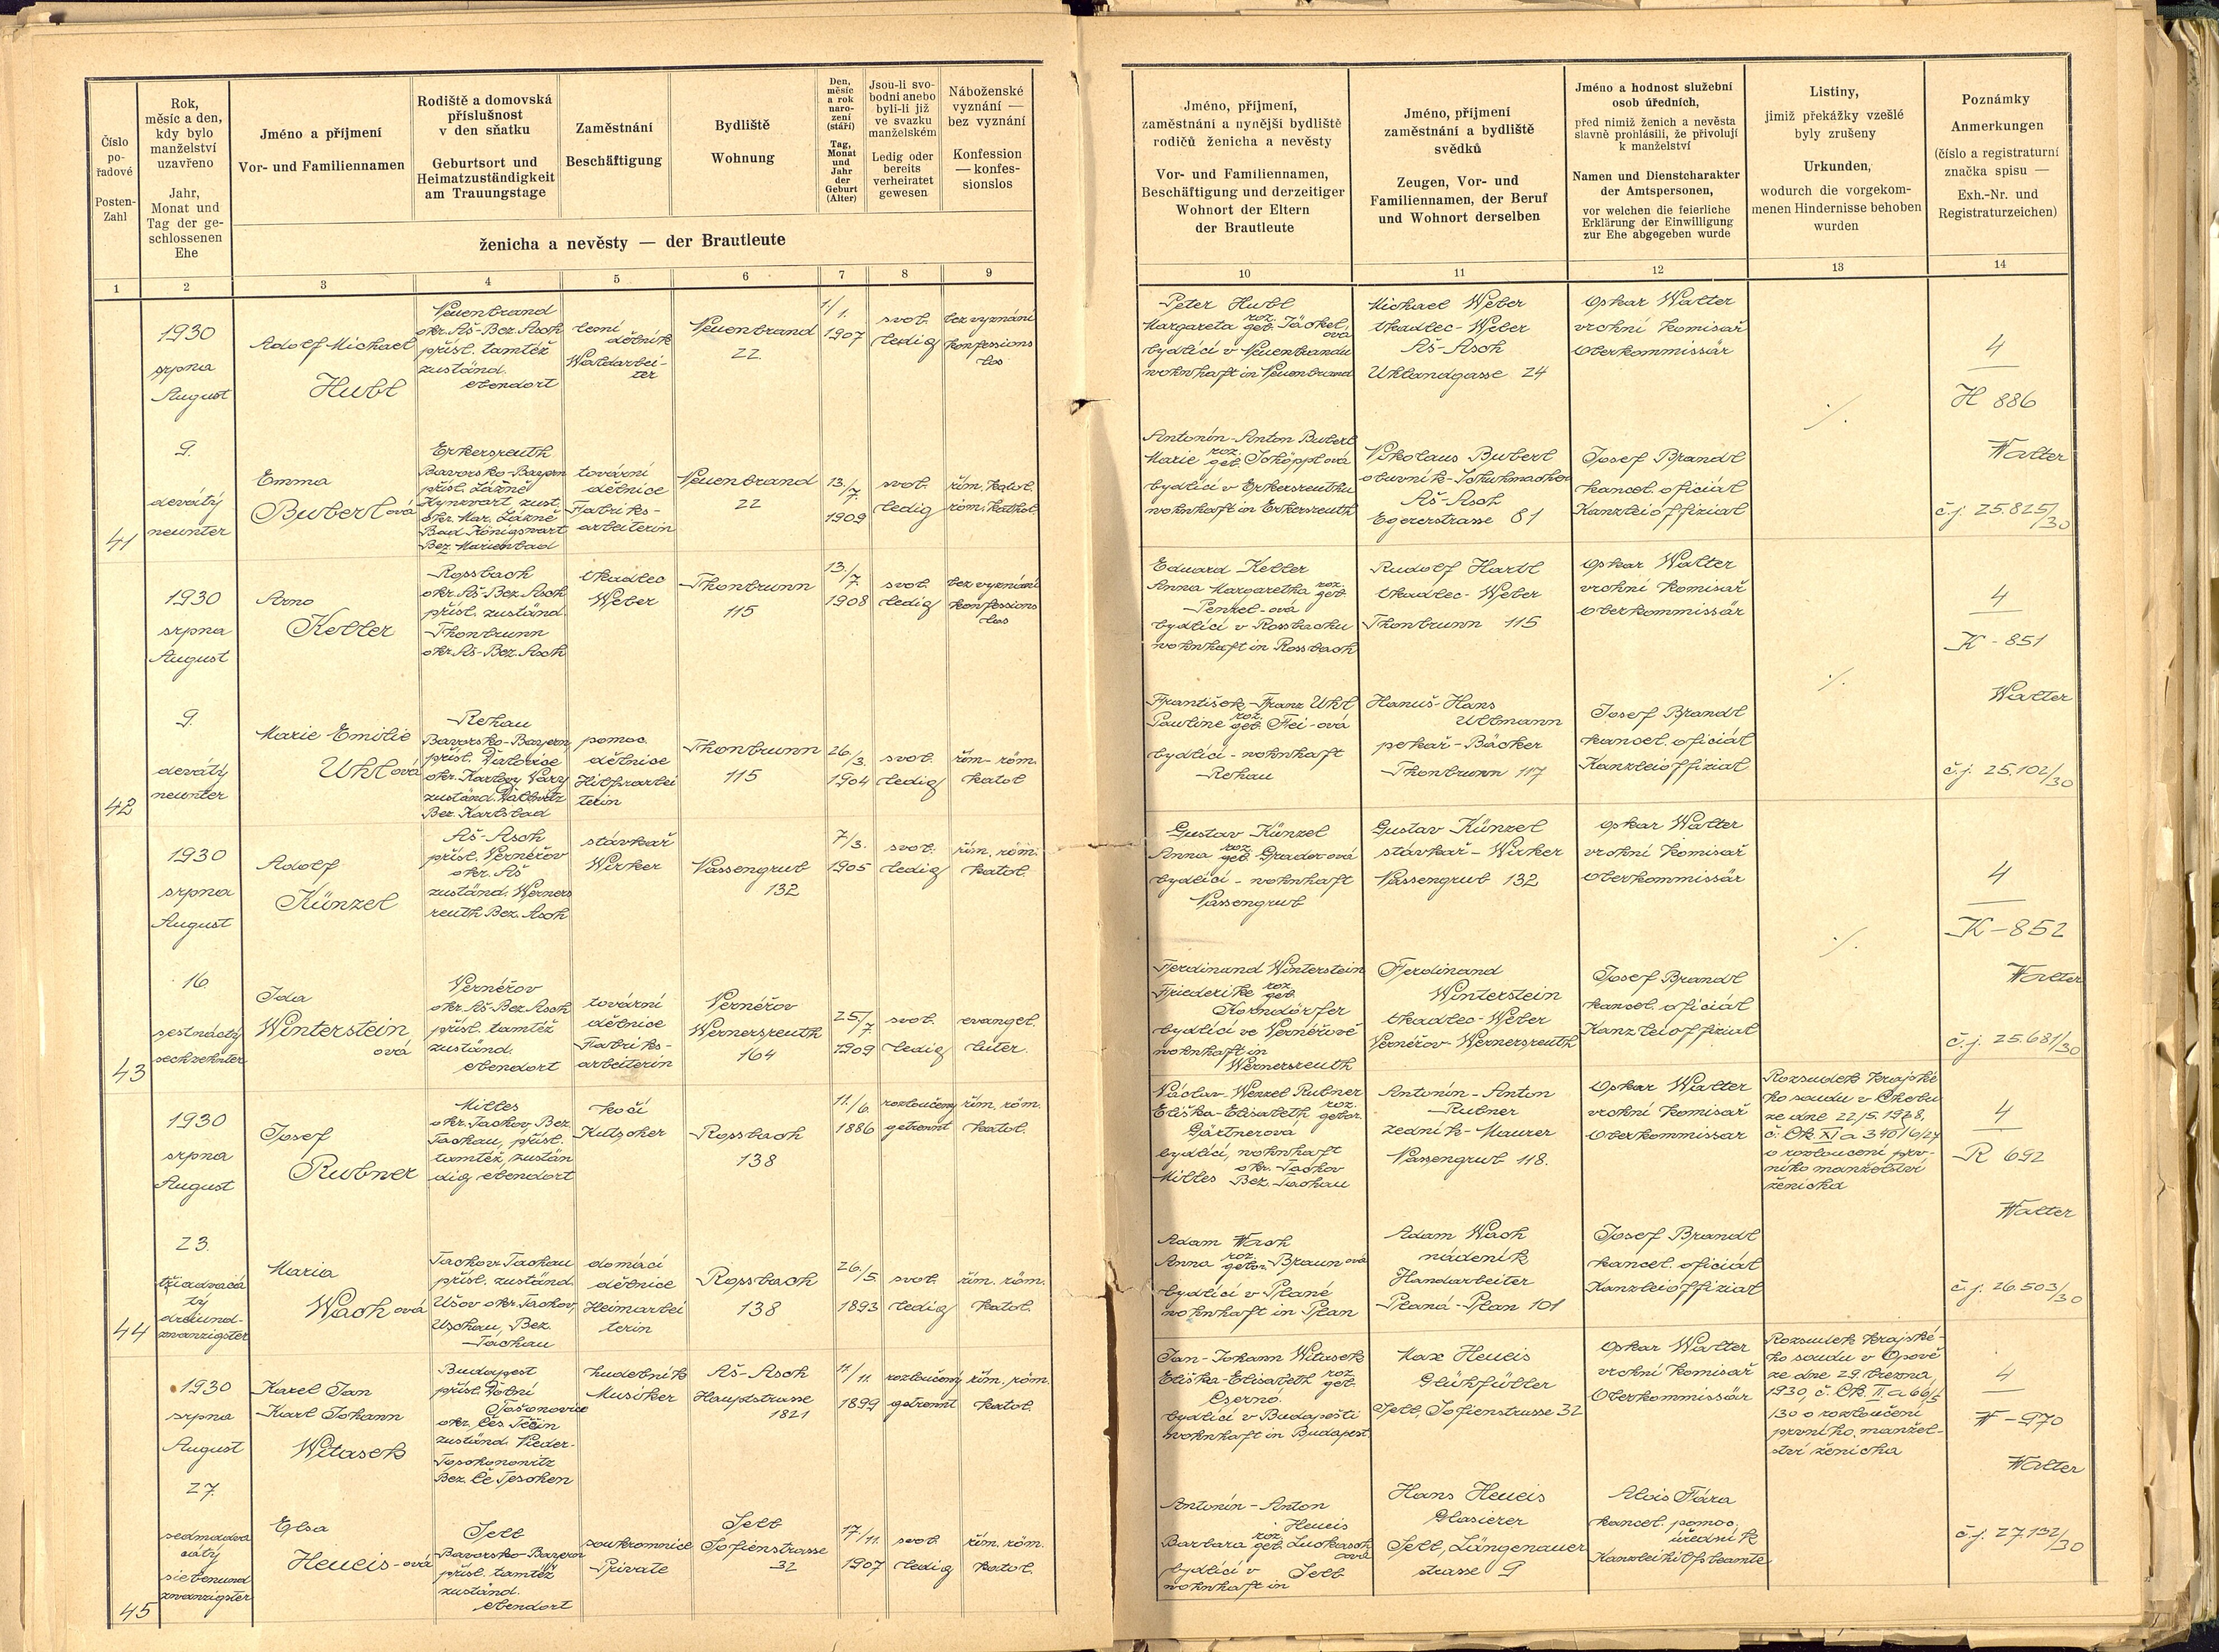 Číslo
po-
řadové
Posten-
Zahl
Rok,
měsíc a den,
kdy bylo
manželství
uzavřeno
Jahr,
Monat und
Tag der ge-
schlossenen
Ehe
Jméno a příjmení
Vor- und Familiennamen
Rodiště a domovská
příslušnost
v den sňatku
Geburtsort und
Heimatzuständigkeit
am Trauungstage
Zaměstnání
Beschäftigung
Bydliště
Wohnung
Den,
měsíc
a rok
naro-
zení
(stáří)
Tag,
Monat
und
Jahr
der
Geburt
(Alter)
Jsou-li svo-
bodni anebo
byli-li již
ve svazku
manželském
Ledig oder
bereits
verheiratet
gewesen
Náboženské
vyznání —
bez vyznání
Konfession
— konfes-
sionslos
ženicha a nevěsty — der Brautleute
1 2 3 4 5 6 7 8 9
Jméno, příjmení,
zaměstnání a nynější bydliště
rodičů ženicha a nevěsty
Vor- und Familiennamen,
Beschäftigung und derzeitiger
Wohnort der Eltern
der Brautleute
Jméno, příjmení
zaměstnání a bydliště
svědků
Zeugen, Vor- und
Familiennamen, der Beruf
und Wohnort derselben
Jméno a hodnost služební
osob úředních,
před nimiž ženich a nevěsta
slavně prohlásili, že přivolují
k manželství
Namen und Dienstcharakter
der Amtspersonen,
vor welchen die feierliche
Erklärung der Einwilligung
zur Ehe abgegeben wurde
Listiny,
jimiž překážky vzešlé
byly zrušeny
Urkunden,
wodurch die vorgekom-
menen Hindernisse behoben
wurden
Poznámky
Anmerkungen
(číslo a registraturní
značka spisu —
Exh.-Nr. und
Registraturzeichen)
10 11 12 13 14
41
1930
srpna
August
9.
devátý
neunter
Adolf Michael
Hubl
Neuenbrand
okr. Aš-Bez. Asch
přísl. tamtéž
zuständ.
ebendort
lesní
dělník
Waldarbei-
ter
Neuenbrand
22.
1./1.
1907
svob.
ledig
bez vyznání
konfessions
los
Peter Hubl
Margareta roz. geb. Jäckel
ová
bydlící v Neuenbrandu
wohnhaft in Neuenbrand
Michael Weber
tkadlec-Weber
Aš-Asch
Uhlandgasse 24
Oskar Walter
vrchní komisař
Oberkommissär
./.
4
H 886
Walter
č.j. 25.825/30
Emma
Buberl ová
Erkersreuth
Bavorsko-Bayern
přísl. Lázně
Kynžvart zust.
okr. Mar. Lázně
Bad Königswart
Bez. Marienbad
tovární
dělnice
Fabriks-
arbeiterin
Neuenbrand
22
13./7.
1909
svob.
ledig
řím. katol.
röm. kathol.
Antonín-Anton Buberl
Marie roz. geb. Schöpplová
bydlící v Erkersreuthu
wohnhaft in Erkersreuth
Nikolaus Buberl
obuvník-Schuhmacher
Aš-Asch
Egererstrasse 81
Josef Brandl
kancel. oficiál
Kanzleioffizial
42
1930
srpna
August
9.
devátý
neunter
Arno
Keller
Rossbach
okr. Aš-Bez. Asch
přísl. zuständ.
Thonbrunn
okr. Aš-Bez. Asch
tkadlec
Weber
Thonbrunn
115
13./7.
1908
svob.
ledig
bez vyznání
konfessions
los
Eduard Keller
Anna Margaretha roz. geb.
Penzel-ová
bydlící v Rossbachu
wohnhaft in Rossbach
Rudolf Hartl
tkadlec-Weber
Thonbrunn 115
Oskar Walter
vrchní komisař
Oberkommissär
./.
4
K-851
Walter
č.j. 25.102/30
Marie Emilie
Uhlová
Rehau
Bavorsko-Bayern
přísl. Ďalovice
okr. Karlovy Vary
zuständ. Dallwitz
Bez. Karlsbad
pomoc.
dělnice
Hilfsarbei
terin
Thonbrunn
115
26./3.
1904
svob.
ledig
řím-röm.
katol.
František-Franz Uhl
Pauline roz. geb. Fei-ová
bydlící-wohnhaft
Rehau
Hanuš-Hans
Ullmann
pekař-Bäcker
Thonbrunn 117
Josef Brandl
kancel. oficiál
Kanzleioffizial
43
1930
srpna
August
16
šestnáctý
sechzehnter
Adolf
Künzel
Aš-Asch
přísl. Vernéřov
okr. Aš
zuständ. Werners
reuth Bez. Asch
stávkař
Wirker
Nassengrub
132
7/3.
1905
svob.
ledig
řím. röm.
katol.
Gustav Künzel
Anna roz. geb. Graderová
bydlící-wohnhaft
Nassengrub
Gustav Künzel
stávkař-Wirker
Nassengrub 132
Oskar Walter
vrchní komisař
Oberkommissär
./.
4
K-852
Walter
č.j. 25.681/30
Ida
Winterstein
ová
Vernéřov
okr. Aš-Bez. Asch
přísl. tamtéž
zuständ.
ebendort
tovární
dělnice
Fabriks-
arbeiterin
Vernéřov
Wernersreuth
164
25./7
1909
svob.
ledig
evangel.
luter.
Ferdinand Winterstein
Friederike roz. geb.
Korndörfer
bydlící ve Vernéřově
wohnhaft in
Wernersreuth
Ferdinand
Winterstein
tkadlec-Weber
Vernéřov-Wernersreuth
Josef Brandl
kancel. oficiál
Kanzleioffizial
44
1930
srpna
August
23.
třiadvacá
tý
dreiund-
zwanzigster
Josef
Rubner
Milles
okr. Tachov, Bez.
Tachau, přísl.
tamtéž, zustän
dig ebendort
kočí
Kutscher
Rossbach
138
11./6.
1886
rozloučený
getrennt
řím. röm.
katol.
Václav-Wenzel Rubner
Eliška-Elisabeth roz. gebor.
Gärtnerová
bydlící, wohnhaft
Milles okr. Tachov
Bez. Tachau
Antonín-Anton
Rubner
zedník-Maurer
Nassengrub 118.
Oskar Walter
vrchní komisař
Oberkommissar
Rozsudek krajské
ho soudu v Chebu
ze dne 22/5. 1928,
č. Ck. XI a 340/6/27
o rozloučení prv-
ního manželství
ženicha
4
R 692
Walter
č.j. 26.503/30
Maria
Wachová
Tachov Tachau
přísl. zuständ.
Ušov okr. Tachov,
Uschau, Bez.
Tachau
domácí
dělnice
Heimarbei
terin
Rossbach
138
26./5.
1893
svob.
ledig
řím. röm.
katol.
Adam Wach
Anna roz. gebor. Braunová
bydlící v Plané
wohnhaft in Plan
Adam Wach
nádeník
Handarbeiter
Planá-Plan 101
Josef Brandl
kancel. oficiál
Kanzleioffizial
45
1930
srpna
August
27.
sedmadva
cátý
siebenund
zwanzigster
Karel Jan
Karl Johann
Witasek
Budapest
přísl. Dolní
Tašonovice
okr. Čes. Těšín
zuständ. Nieder-
Toschonowitz
Bez. Če Teschen
hudebník
Musiker
Aš-Asch
Hauptstrasse
1821
11/11.
1899
rozloučený
getrennt
řím. röm.
katol.
Jan-Johann Witasek
Eliška-Elisabeth roz. geb.
Cserno.
bydlící v Budapešti
wohnhaft in Budapest.
Max Heueis
Glühfüller
Selb, Sofienstrasse 32
Oskar Walter
vrchní komisař
Oberkommissär
Rozsudek krajské-
ho soudu v Opově
ze dne 29. března
1930, č. Ck. II. a 66/5
/30 o rozloučení
prvního manžel-
ství ženicha
4
W-970
Walter
č.j. 27.192/30
Elsa
Heueis-ová
Selb
Bavorsko-Bayern
přísl. tamtéž
zuständ.
ebendort
soukromnice
Private
Selb
Sofienstrasse
32
17./11.
1907
svob.
ledig
řím. röm.
katol.
Antonín-Anton
Heueis
Barbara roz. geb. Luckasch
ová
bydlící v Selb
wohnhaft in
Hans Heueis
Glasierer
Selb, Längenauer
strasse 9
Alois Fára
kancel. pomoc.
úředník
Kanzleihilfsbeamte